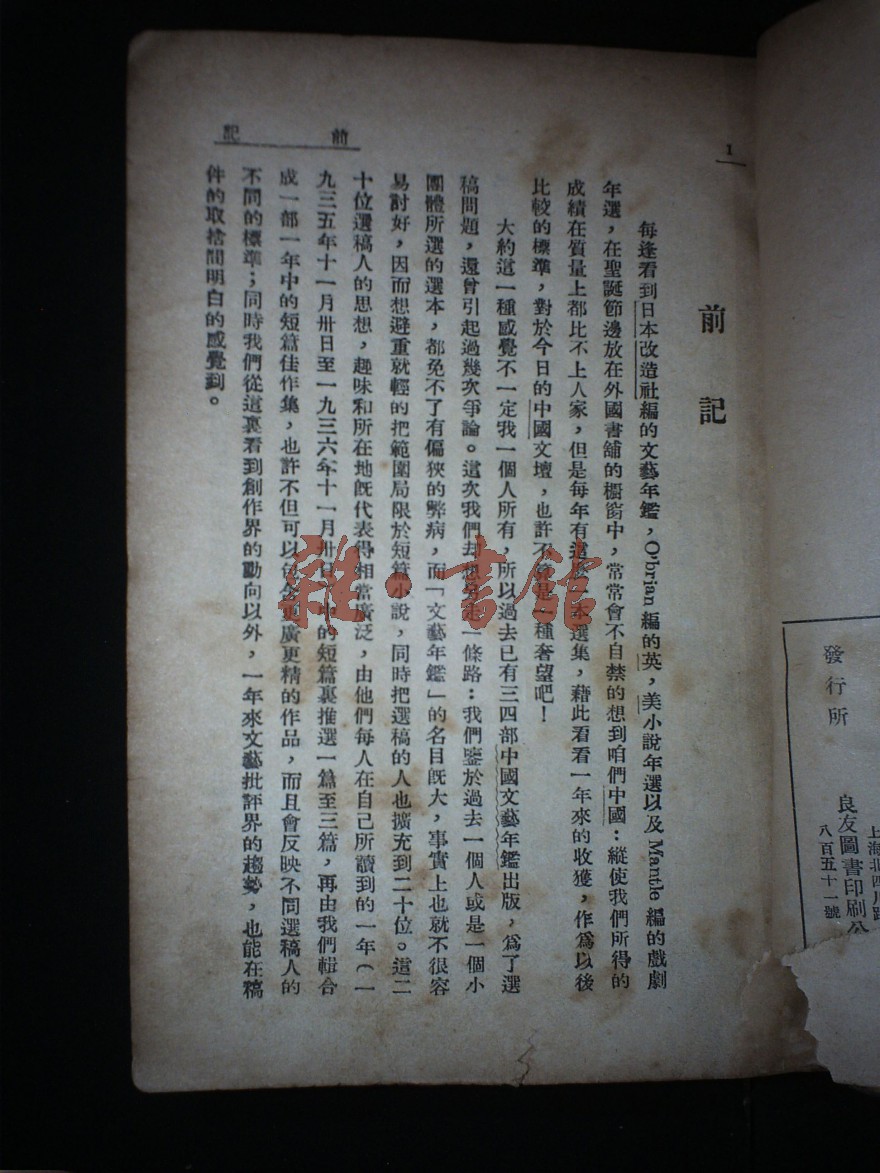 1
前記
每逢看到日本改造社編的文藝年鑑，O'brian 編的英，美小說年選以及 Mantle 編的戲劇
年選，在聖誕節邊放在外國書舖的櫥窗中，常常會不自禁的想到咱們中國：縱使我們所得的
成績在質量上都比不上人家，但是每年有這麼一本選集，藉此看看一年來的收獲，作爲以後
比較的標準，對於今日的中國文壇，也許不算是一種奢望吧！
大約這一種感覺不一定我一個人所有，所以過去已有三四部中國文藝年鑑出版，爲了選
稿問題，還曾引起過幾次爭論。這次我們却想另走一條路：我們鑒於過去一個人或是一個小
團體所選的選本，都免不了有偏狹的弊病，而「文藝年鑑」的名目旣大，事實上也就不很容
易討好，因而想避重就輕的把範圍局限於短篇小說，同時把選稿的人也擴充到二十位。這二
十位選稿人的思想，趣味和所在地旣代表得相當廣泛，由他們每人在自己所讀到的一年（一
九三五年十一月卅日至一九三六年十一月卅日）中的短篇裏推選一篇至三篇，再由我們輯合
成一部一年中的短篇佳作集，也許不但可以包含更廣更精的作品，而且會反映不同選稿人的
不同的標準；同時我們從這裏看到創作界的動向以外，一年來文藝批評界的趨勢，也能在稿
件的取捨間明白的感覺到。
前記
發行所
上海北四川路
八百五十一號
良友圖書印刷公
雜·書館